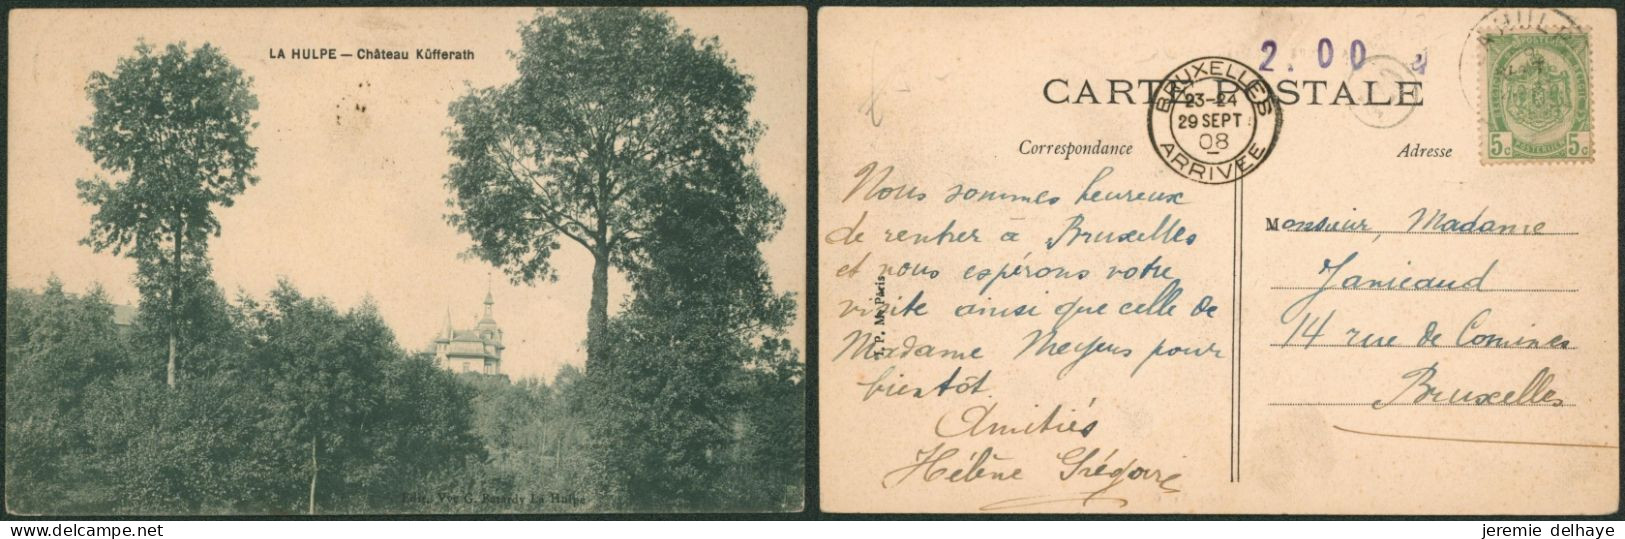 LA HULPE — Château Küfferath
Edit. Vve G. Balardy La Hulpe
2.00
CARTE POSTALE
BRUXELLES
23-24
29 SEPT
08
ARRIVÉE
Correspondance
Adresse
5c POSTERIJEN 5c
Nous sommes heureux
de rentrer à Bruxelles
et nous espérons votre
visite ainsi que celle de
Madame Meyers pour
bientôt.
Amitiés
Hélène Grégoire
Monsieur, Madame
Janicaud
14 rue de Comines
Bruxelles
I. P. M. Paris
jeremie delhaye